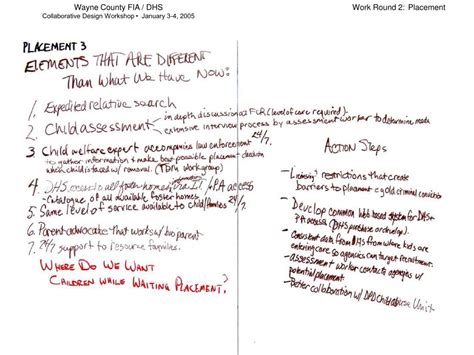 Wayne County FIA / DHS
Collaborative Design Workshop • January 3-4, 2005
Work Round 2: Placement
PLACEMENT 3
ELEMENTS THAT ARE DIFFERENT
Than What We Have Now:
1. Expedited relative search
2. Child assessment
in depth discussion FCR (level of care required).
extensive interview process by assessment worker to determine needs
3 Child welfare expert accompanies law enforcement 24/7
to gather information & make best possible placement decision
which child is faced w/ removal. (TDM workgroup)
4. DHS access
- Catalogue of all available foster homes 24/7.
5. Same level of service available to child/families
6. Parent advocate that works w/ bio parent
7. 24/7 support to resource families.
WHERE DO WE WANT
CHILDREN WHILE WAITING PLACEMENT?
ACTION STEPS
- restrictions that create
barriers to placement old criminal conviction
- Develop common web based system for DHS-
PA access (DHS purchase only).
- Consistent data from DHS from where kids are
entering care so agencies can target recruitment.
- assessment worker contacts agencies w/
potential placement
- Better collaboration w/ DPD Child Abuse Unit